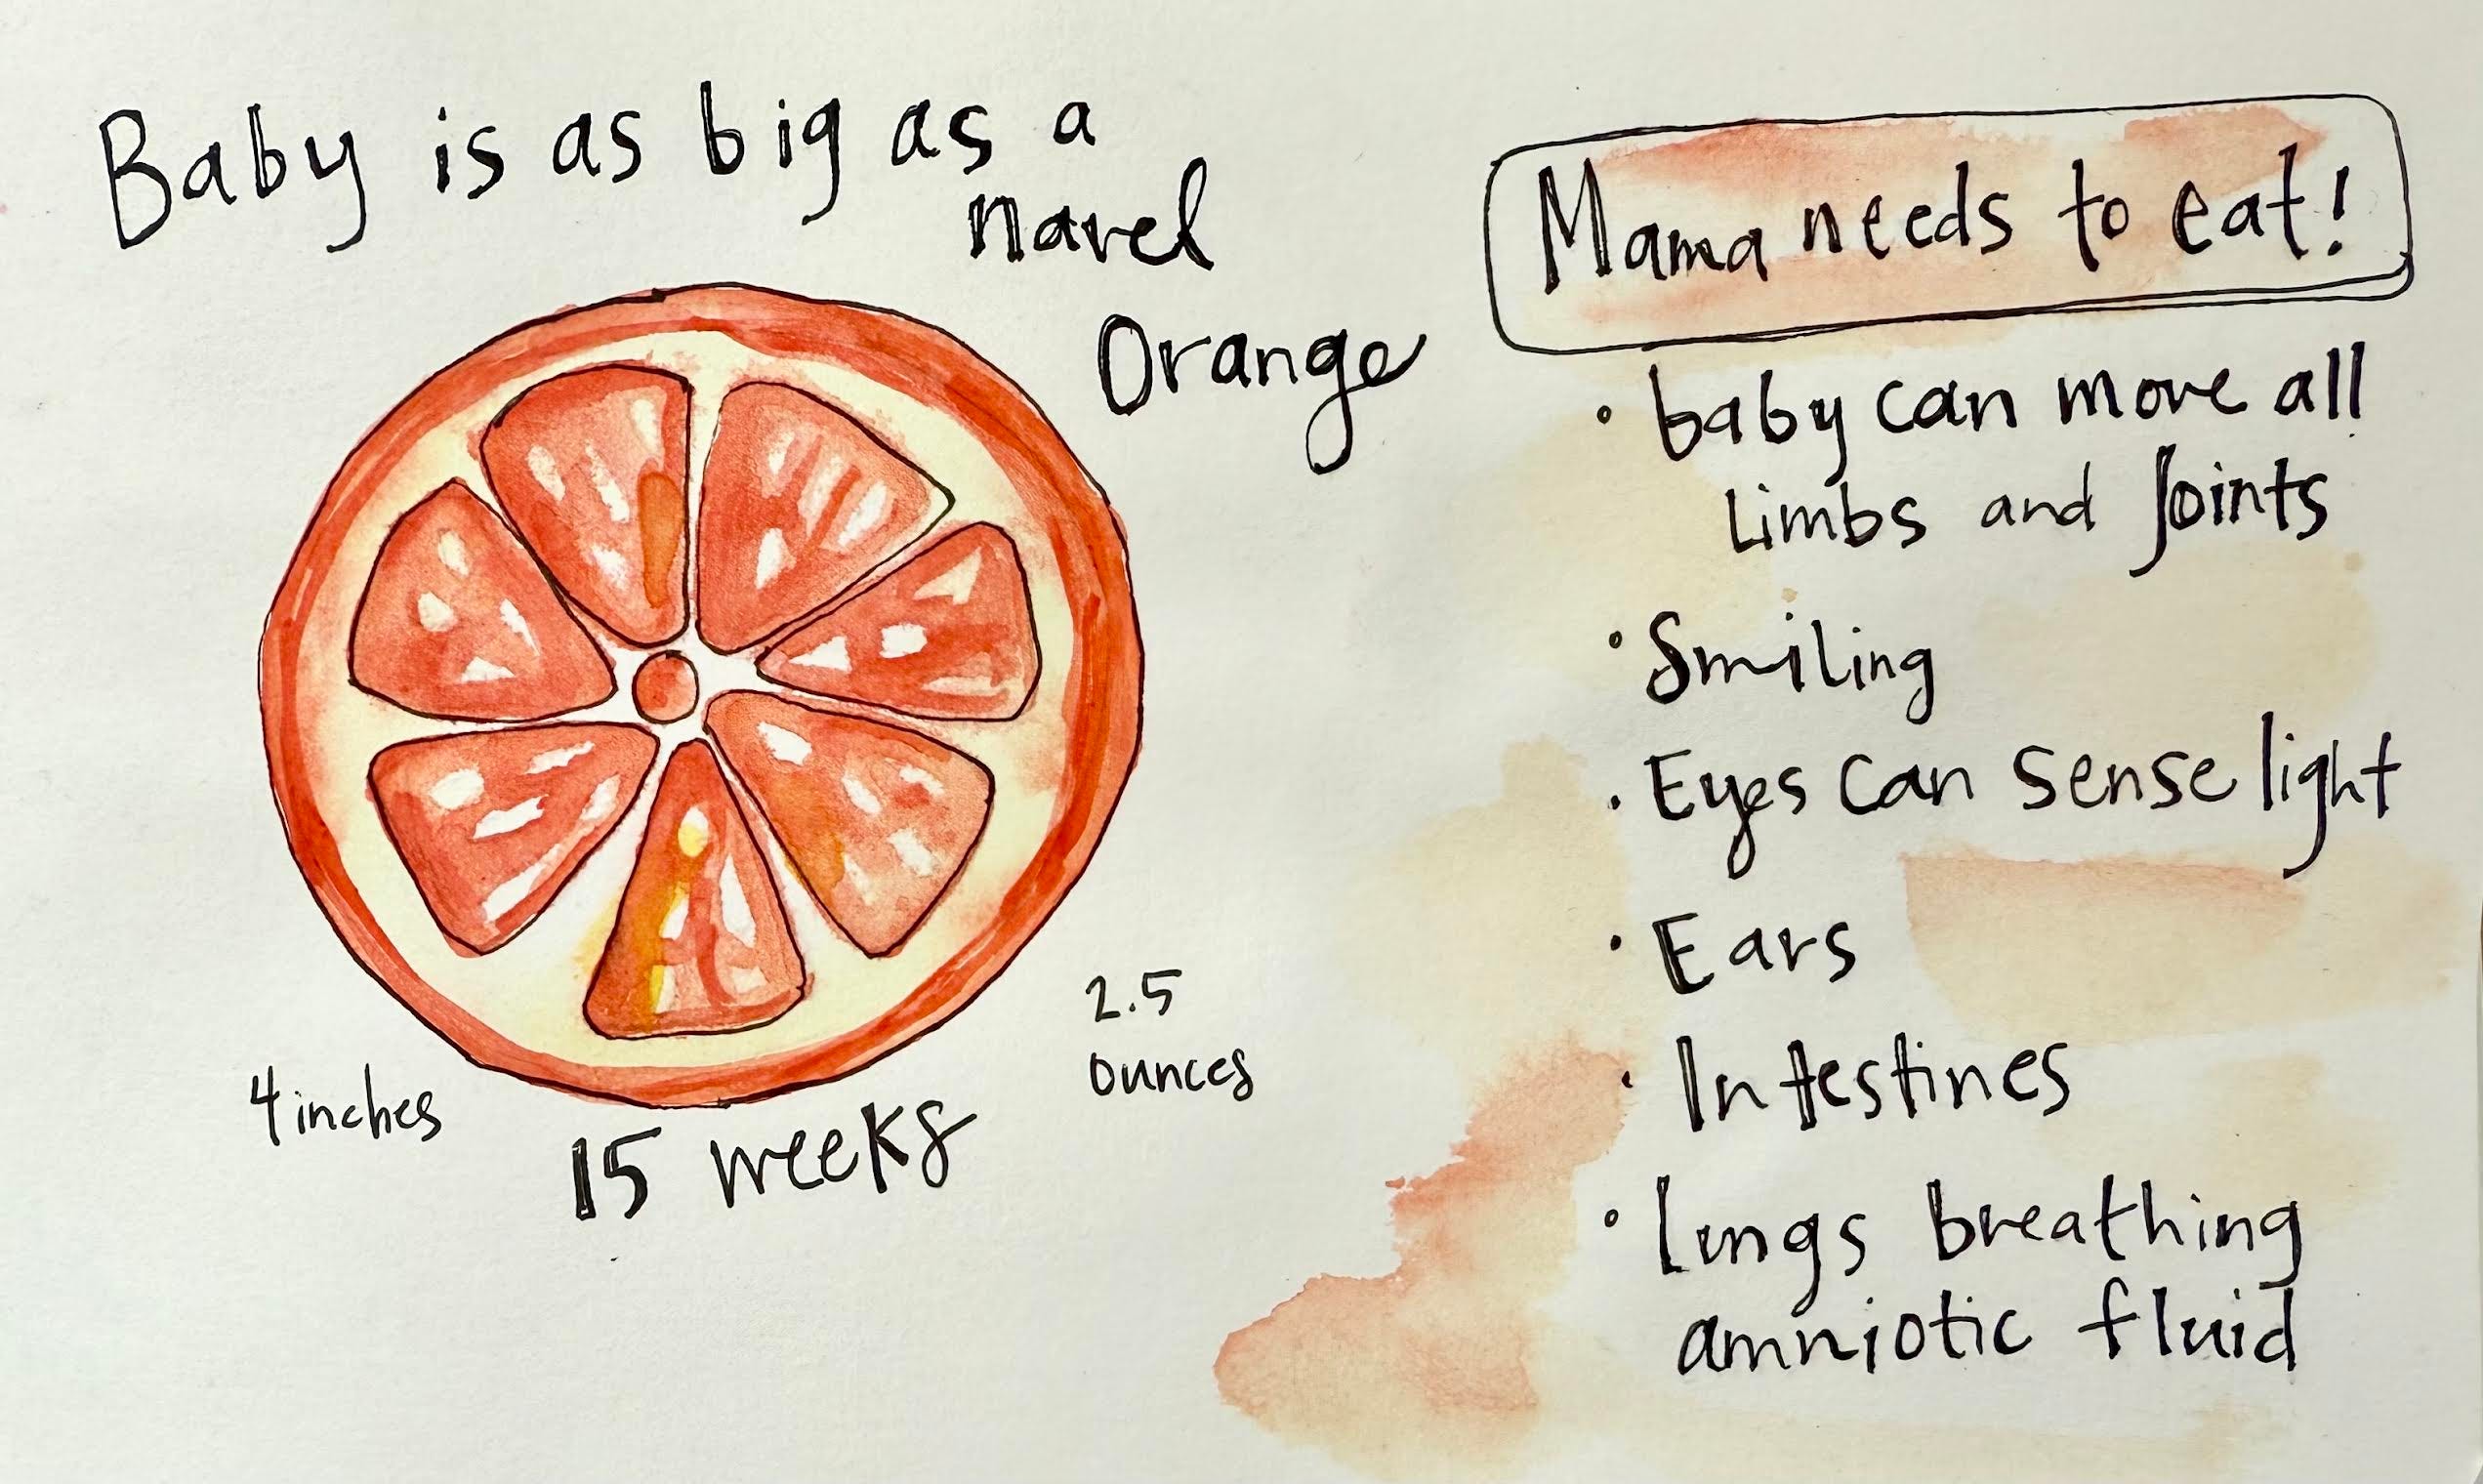 Baby is as big as a
navel
Orange
4 inches
15 weeks
2.5
ounces
Mama needs to eat!
• baby can move all
limbs and Joints
• Smiling
• Eyes can sense light
• Ears
• Intestines
• lungs breathing
amniotic fluid